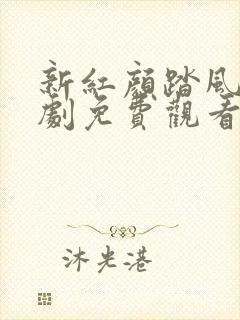 新紅顏踏風
劇免費觀看
沐光港